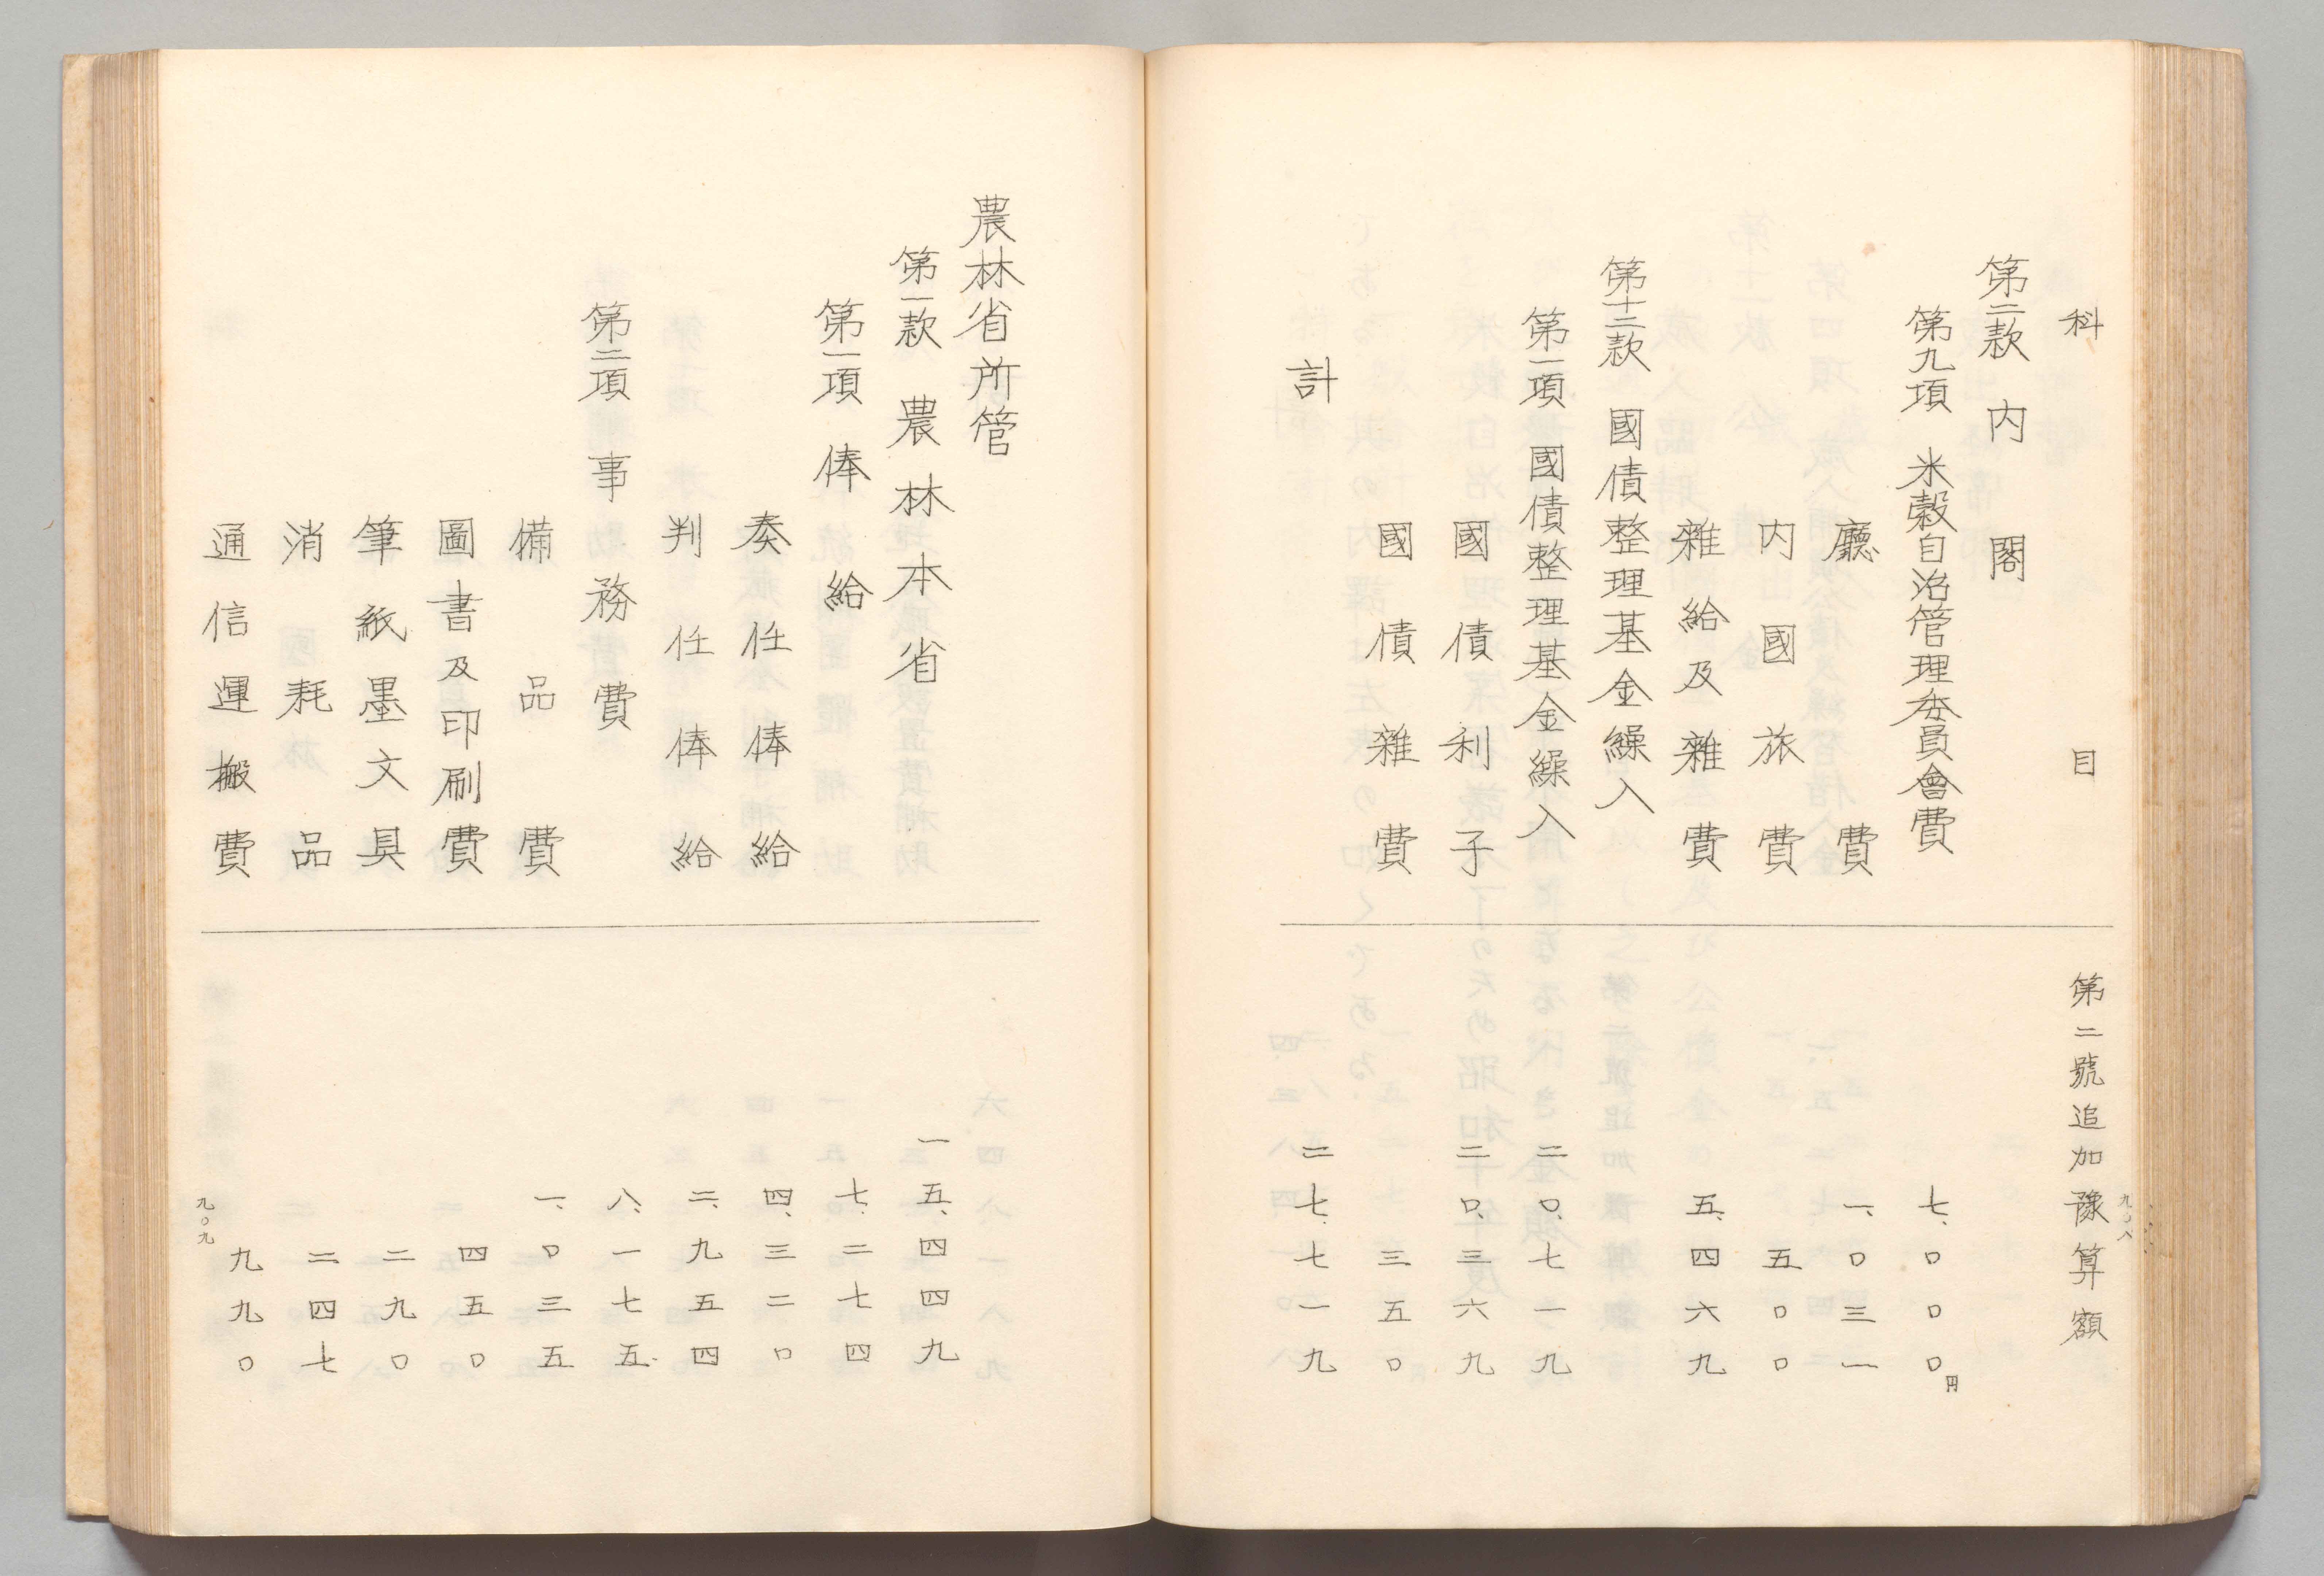 科目 第二號追加豫算額
九〇八
第二款 内閣
第九項 米穀自治管理委員會費 七、〇〇〇円
廳費 一、〇三一
内國旅費 五〇〇
雜給及雜費 五、四六九
第十二款 國債整理基金繰入
第一項 國債整理基金繰入 二〇、七一九
國債利子 二〇、三六九
國債雜費 三五〇
計 二七、七一九
農林省所管
第一款 農林本省 一五、四四九
第一項 俸給 七、二七四
奏任俸給 四、三二〇
判任俸給 二、九五四
第二項 事務費 八、一七五
備品費 一、〇三五
圖書及印刷費 四五〇
筆紙墨文具 二九〇
消耗品 二四七
通信運搬費 九九〇
九〇九